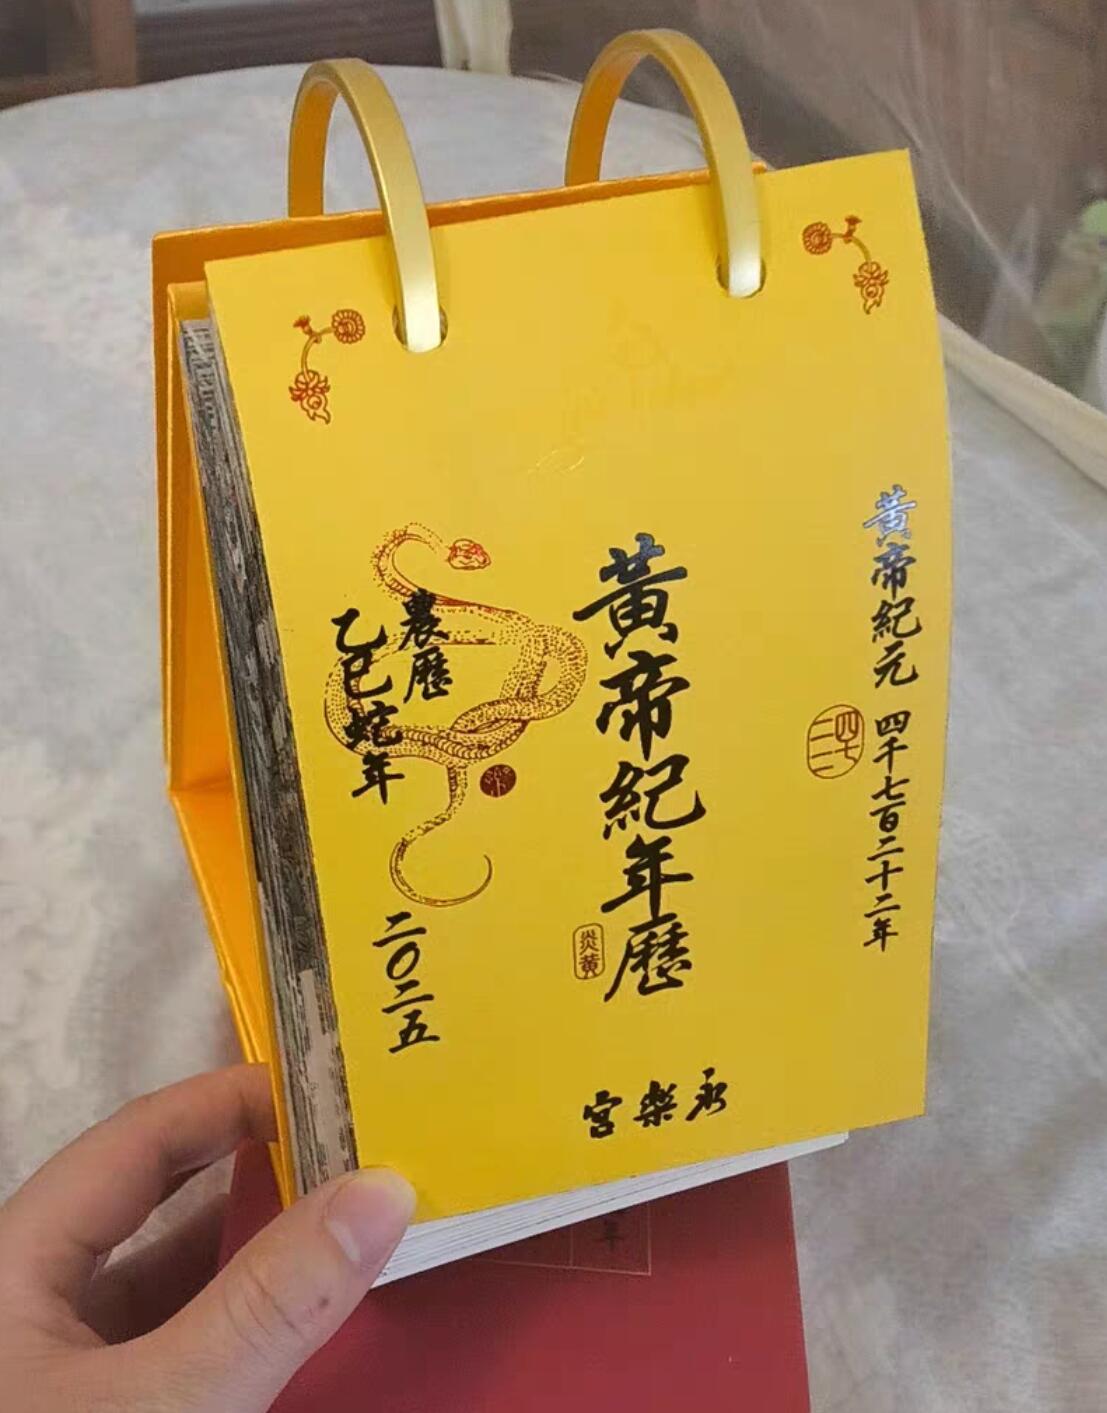 黃帝紀元 四千七百二十二年
四七二二
黃帝紀年歷
炎黃
農歷
乙巳蛇年
二〇二五
永樂宮
年